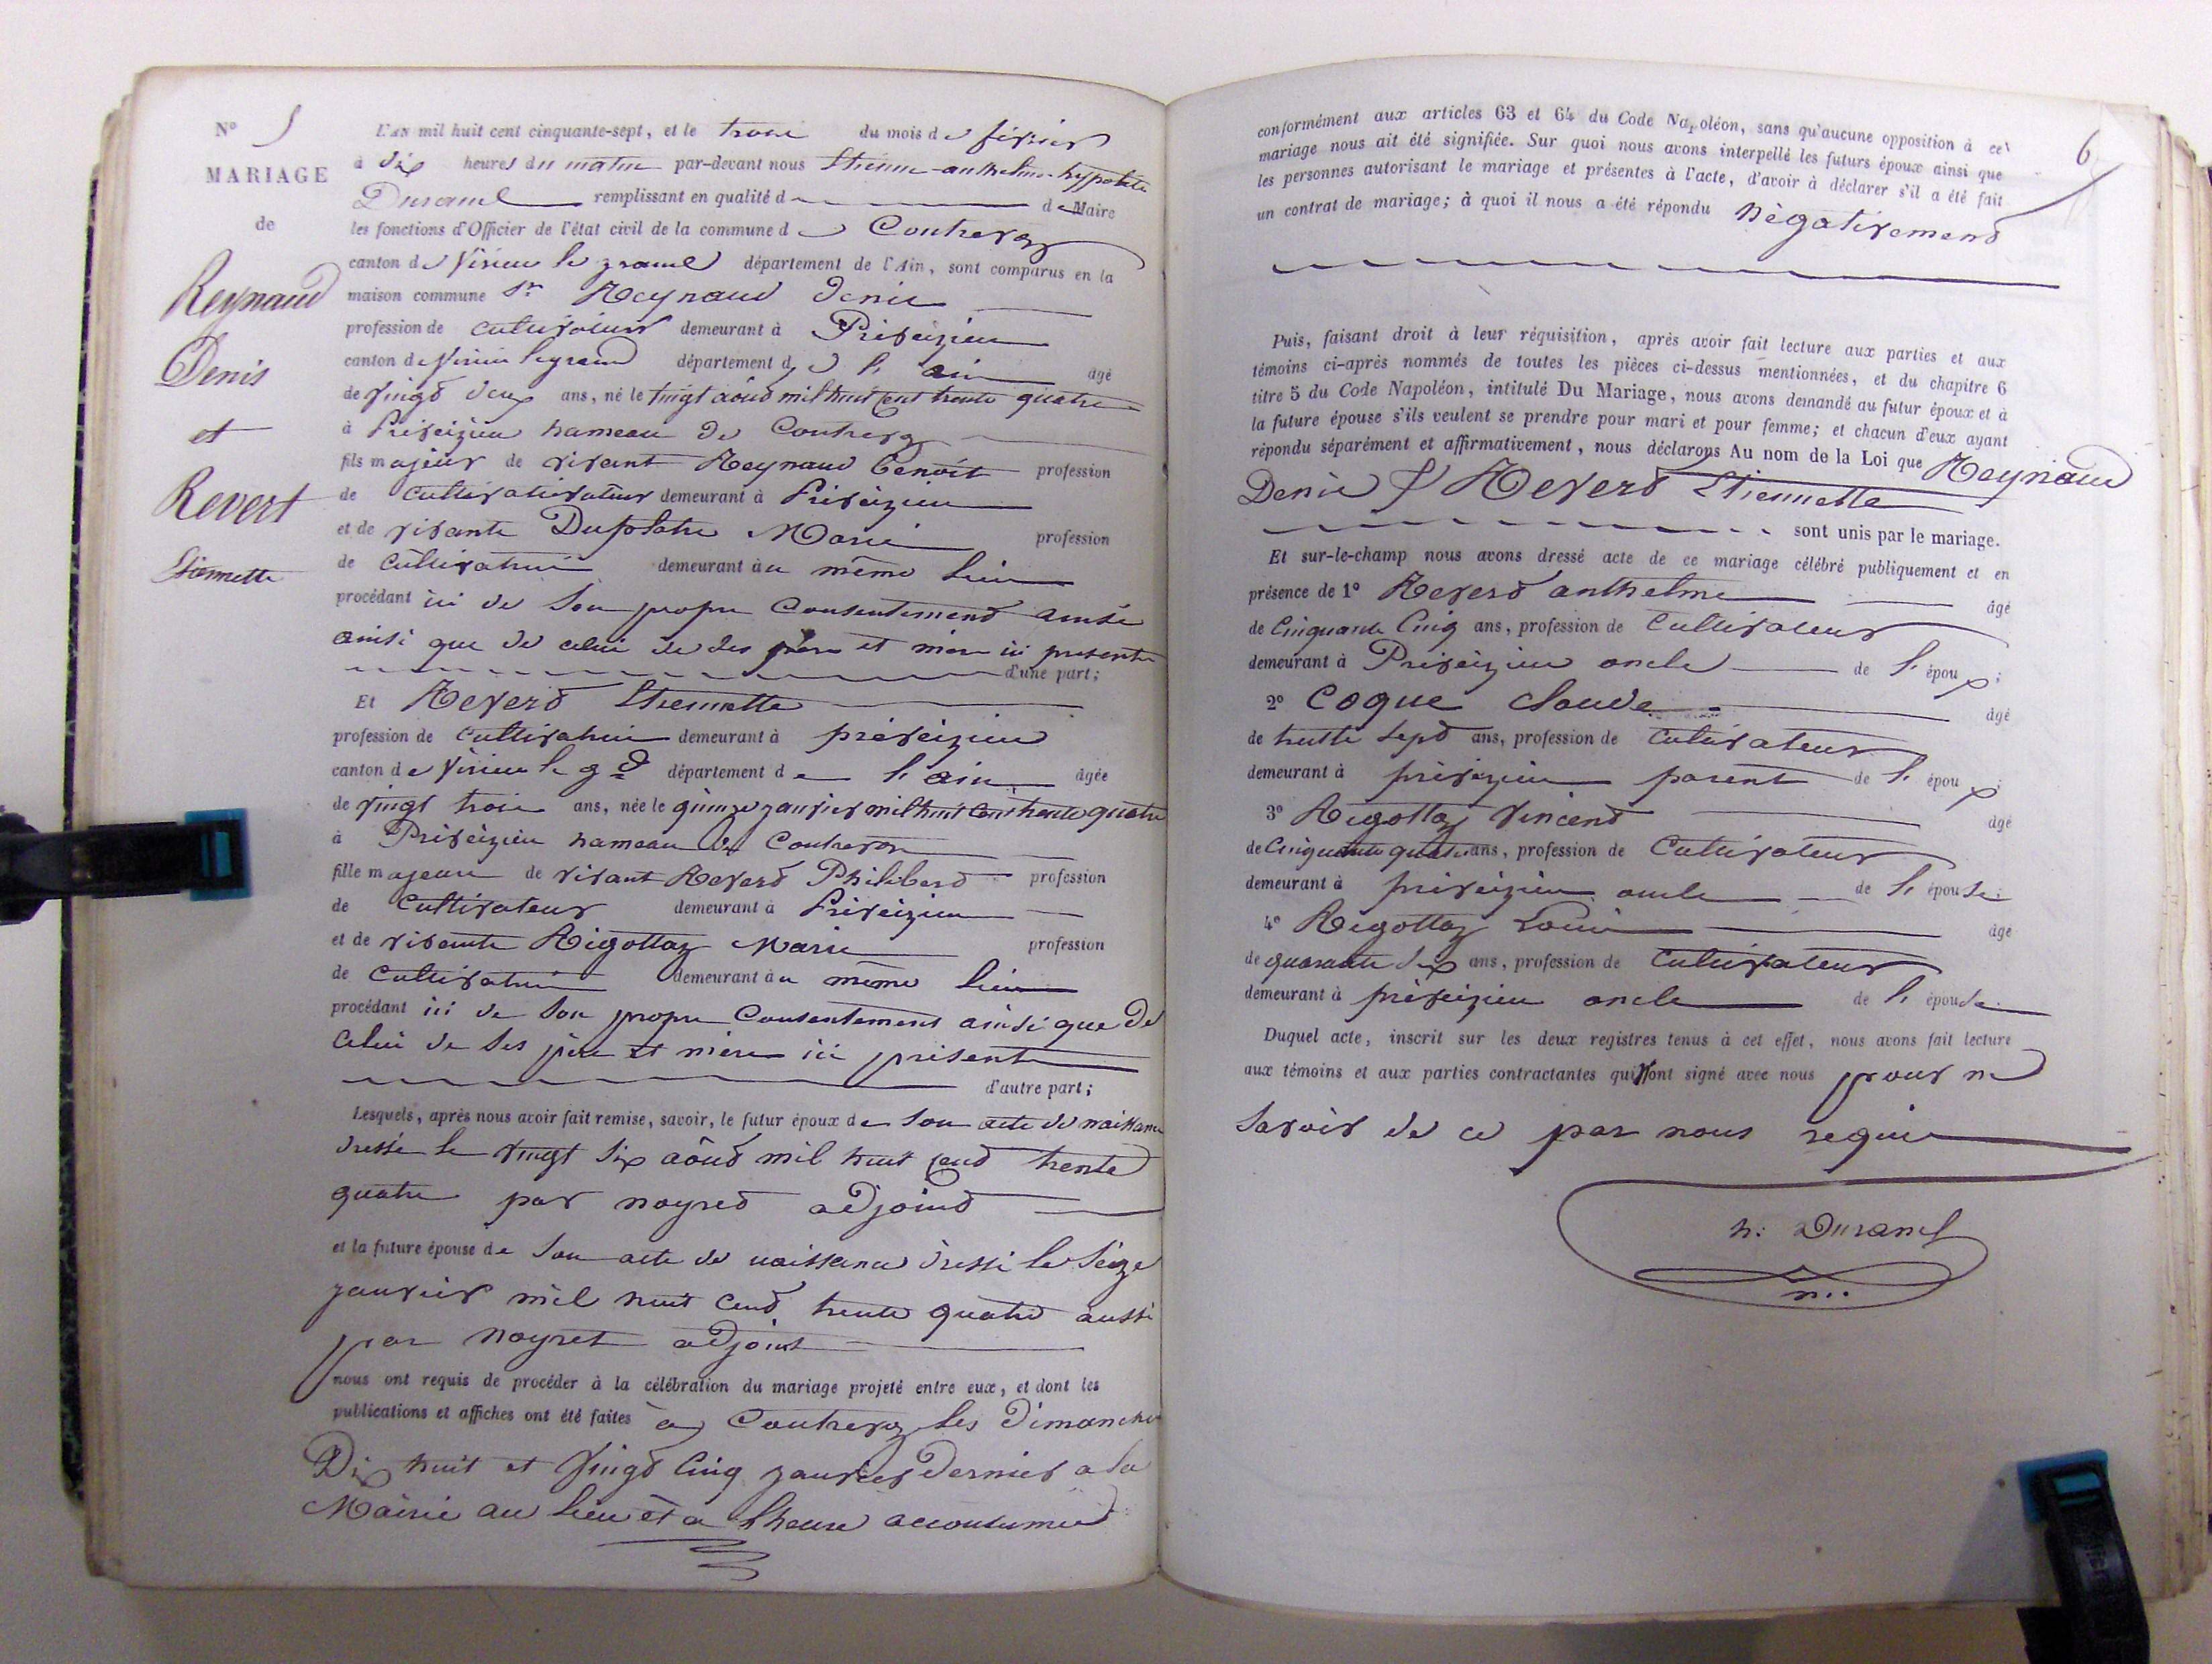 N° 5
MARIAGE
de
Reynaud
Denis
et
Revert
Etiennette
L'AN mil huit cent cinquante-sept, et le trois du mois de février
à dix heures du matin par-devant nous Etienne-anthelme-hypolite
Durand remplissant en qualité d de Maire
les fonctions d'Officier de l'état civil de la commune de Contrevoz
canton de Virieu le grand département de l'Ain, sont comparus en la
maison commune Sr Reynaud Denis
profession de cultivateur demeurant à Préveizieu
canton de Virieu legrand département de l'ain âgé
de vingt deux ans, né le vingt aôud mil huit cent trente quatre
à Préveizieu hameau de Contrevoz
fils majeur de vivant Reynaud Benoît profession
de cultivativateur demeurant à Préveizieu
et de vivante Marie profession
de cultivatrice demeurant au même lieu
procédant ici de son propre Consentement ainsi
ainsi que de celui de ses père et mère ici présents
d'une part;
Et Reverd Etiennette
profession de cultivatrice demeurant à préveizieu
canton de Virieu le gd département de l'ain âgée
de vingt trois ans, née le quinze janvier mil huit cent trente quatre
à Préveizieu hameau de Contrevoz
fille majeure de vivant Reverd Philiberd profession
de Cultivateur demeurant à Préveizieu
et de vivante Rigottaz Marie profession
de Cultivatrice demeurant au même lieu
procédant ici de son propre Consentement ainsi que de
celui de ses père et mère ici présents
d'autre part;
Lesquels, après nous avoir fait remise, savoir, le futur époux de son acte de naissance
dressé le vingt six aôud mil huit cend trente
quatre par noyred adjoind
et la future épouse de son acte de naissance dressé le seize
janvier mil huit cend trente quatre aussi
par Noyret adjoint
nous ont requis de procéder à la célébration du mariage projeté entre eux, et dont les
publications et affiches ont été faites à Contrevoz les Dimanches
Dix huit et vingd cinq janvier Dernier a la
Mairie au lieu et a l'heure accoutumée
6
conformément aux articles 63 et 64 du Code Napoléon, sans qu'aucune opposition à ce
mariage nous ait été signifiée. Sur quoi nous avons interpellé les futurs époux ainsi que
les personnes autorisant le mariage et présentes à l'acte, d'avoir à déclarer s'il a été fait
un contrat de mariage; à quoi il nous a été répondu Négativemend
Puis, faisant droit à leur réquisition, après avoir fait lecture aux parties et aux
témoins ci-après nommés de toutes les pièces ci-dessus mentionnées, et du chapitre 6
titre 5 du Code Napoléon, intitulé Du Mariage, nous avons demandé au futur époux et à
la future épouse s'ils veulent se prendre pour mari et pour femme; et chacun d'eux ayant
répondu séparément et affirmativement, nous déclarons Au nom de la Loi que Reynaud
Denis & Reverd Etiennette
sont unis par le mariage.
Et sur-le-champ nous avons dressé acte de ce mariage célébré publiquement et en
présence de 1° Reverd anthelme âgé
de Cinquante Cinq ans, profession de Cultivateur
demeurant à Préveizieu oncle de l'époux;
2° Coque Claude âgé
de trente sept ans, profession de Cultivateur
demeurant à préveizieu parent de l'époux;
3° Rigottaz Vincend âgé
de Cinquante quatre ans, profession de Cultivateur
demeurant à préveizieu oncle de l'épouse;
4° Rigottaz Louis âgé
de quarante six ans, profession de Cultivateur
demeurant à préveizieu oncle de l'épouse
Duquel acte, inscrit sur les deux registres tenus à cet effet, nous avons fait lecture
aux témoins et aux parties contractantes qui n'ont signé avec nous pour ne
savoir de ce par nous requis
h: Durand